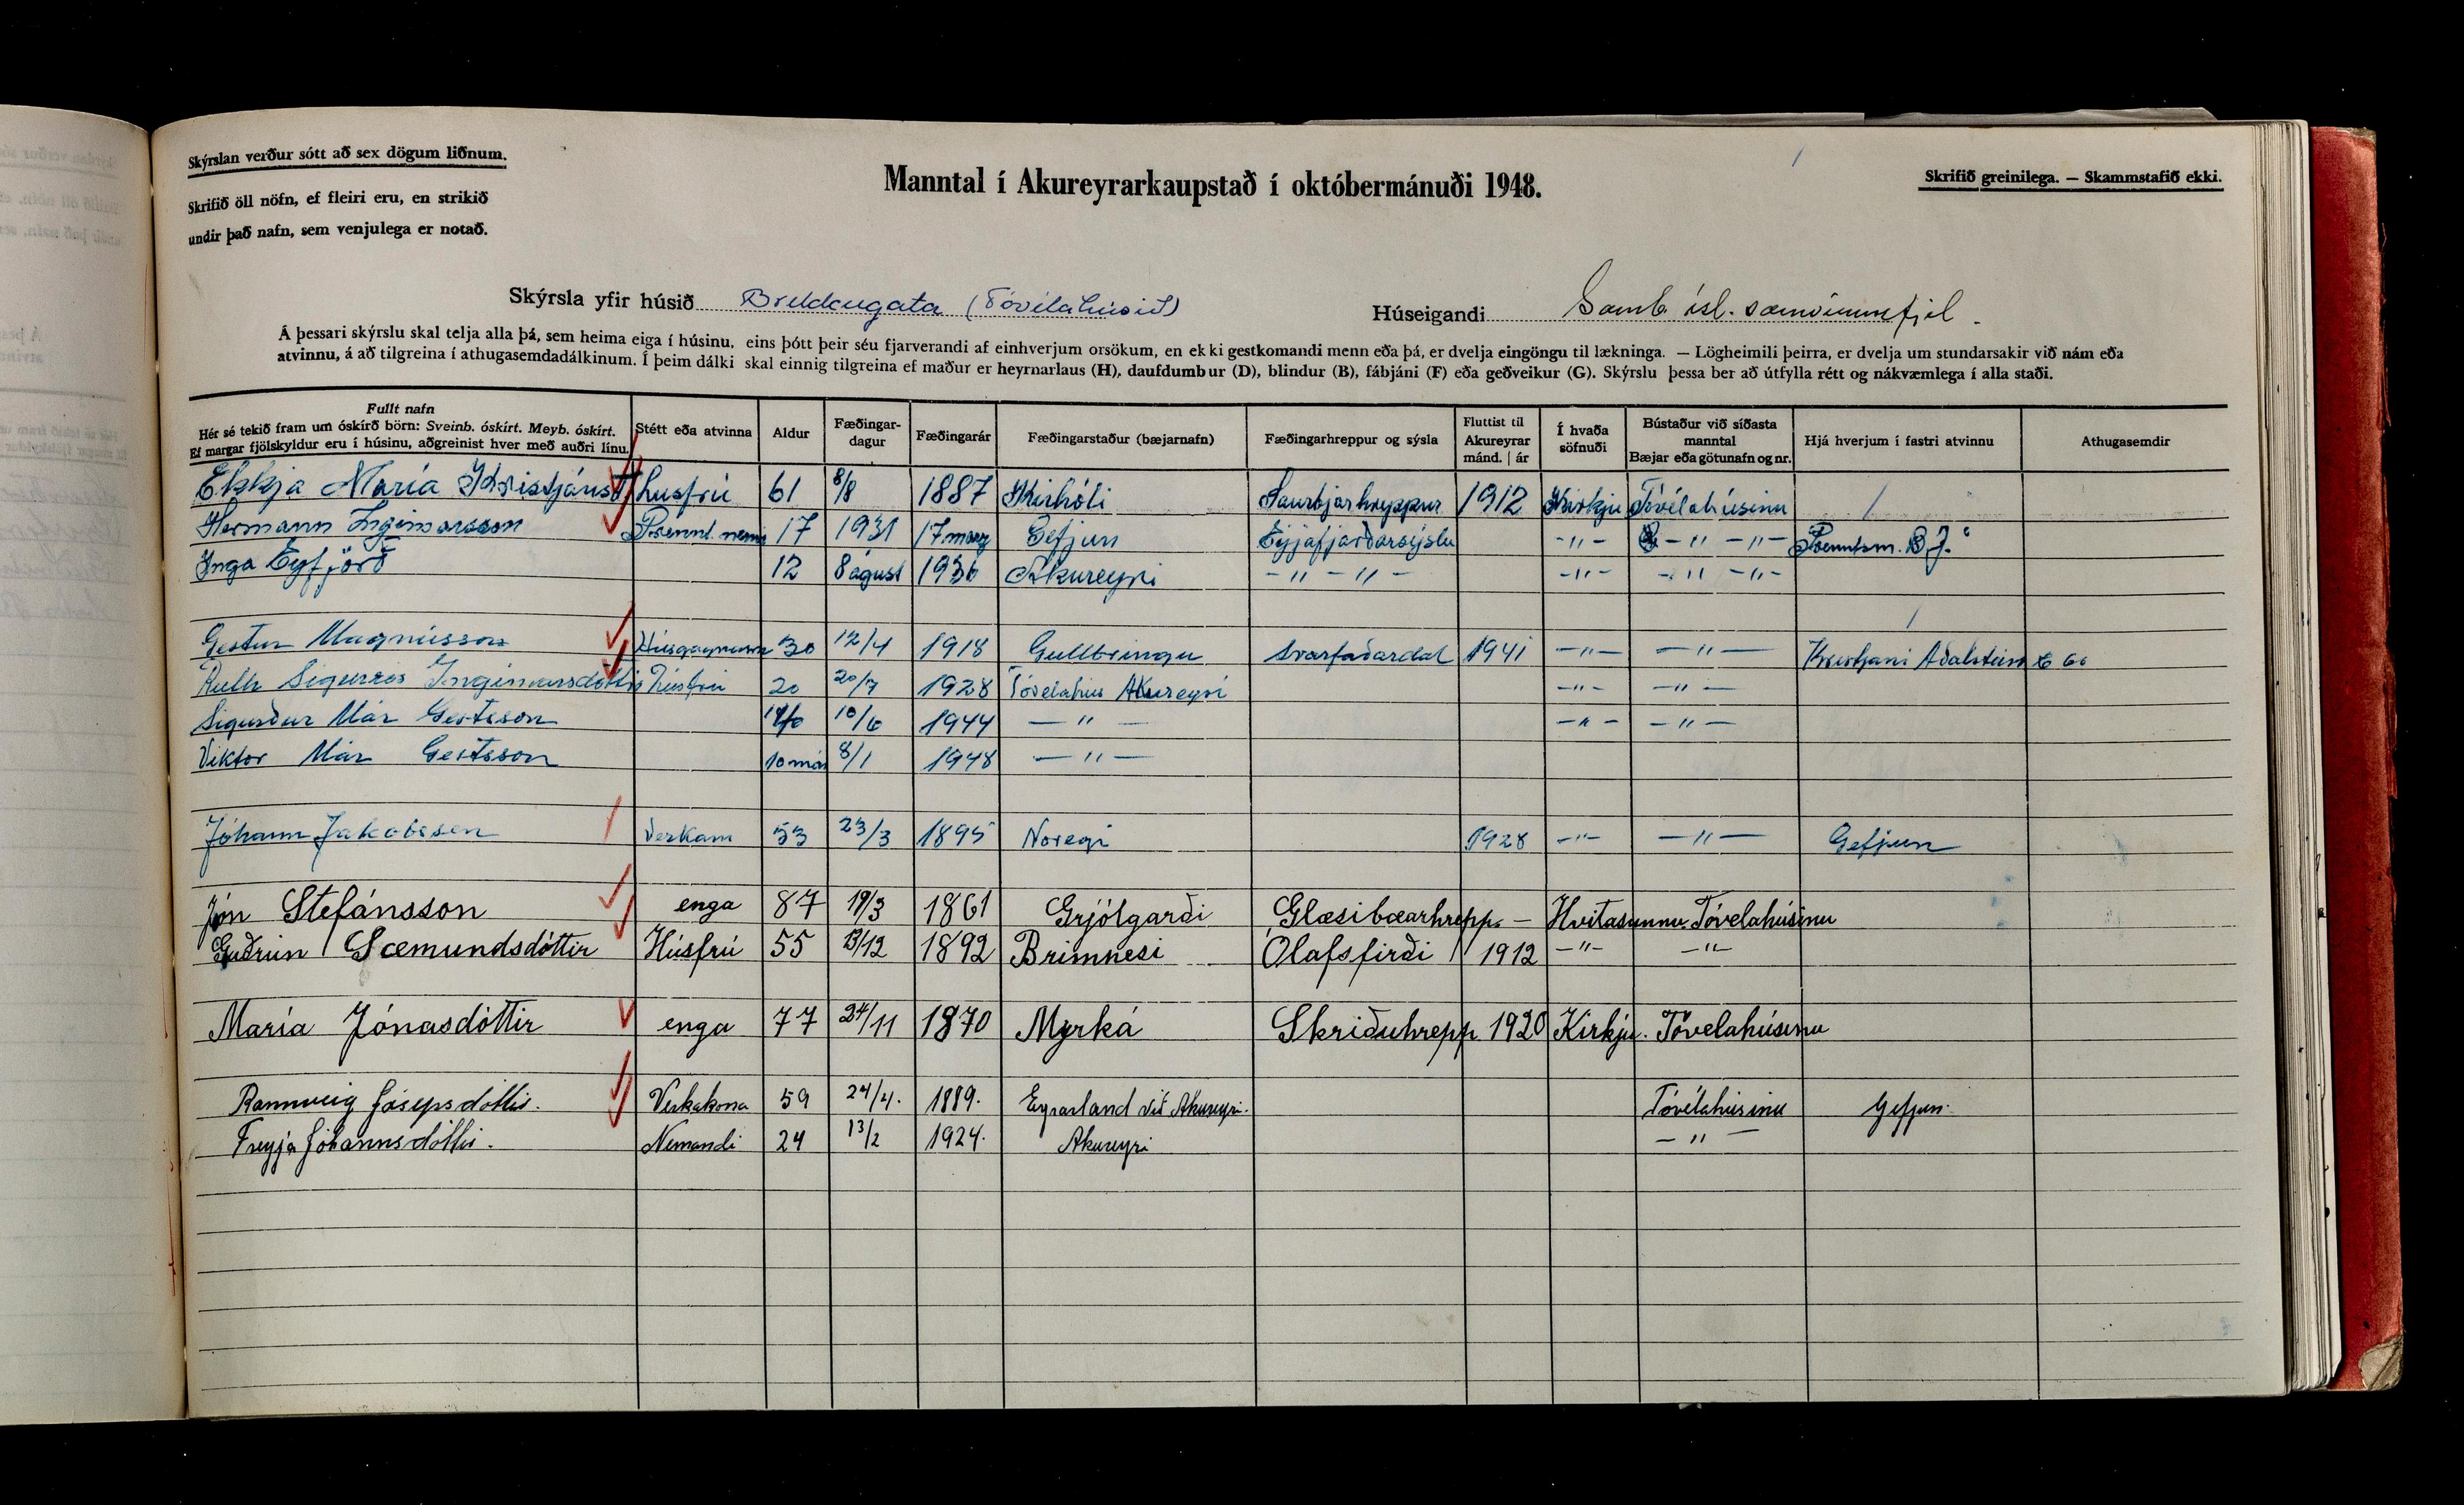 Skýrslan verður sótt að sex dögum liðnum.
Skrifið öll nöfn, ef fleiri eru, en strikið
undir það nafn, sem venjulega er notað.
Manntal í Akureyrarkaupstað í októbermánuði 1948.
Skrifið greinilega. — Skammstafið ekki.
Skýrsla yfir húsið Brekkugata (Tóvélahúsið)
Húseigandi Samb. ísl. samvinnufjel.
Á þessari skýrslu skal telja alla þá, sem heima eiga í húsinu, eins þótt þeir séu fjarverandi af einhverjum orsökum, en ekki gestkomandi menn eða þá, er dvelja eingöngu til lækninga. — Lögheimili þeirra, er dvelja um stundarsakir við nám eða
atvinnu, á að tilgreina í athugasemdadálkinum. Í þeim dálki skal einnig tilgreina ef maður er heyrnarlaus (H), daufdumbur (D), blindur (B), fábjáni (F) eða geðveikur (G). Skýrslu þessa ber að útfylla rétt og nákvæmlega í alla staði.
Fullt nafn
Hér sé tekið fram um óskírð börn: Sveinb. óskírt. Meyb. óskírt.
Ef margar fjölskyldur eru í húsinu, aðgreinist hver með auðri línu.
Stétt eða atvinna
Aldur
Fæðingar-
dagur
Fæðingarár
Fæðingarstaður (bæjarnafn)
Fæðingarhreppur og sýsla
Fluttist til
Akureyrar
mánd. | ár
Í hvaða
söfnuði
Bústaður við síðasta
manntal
Bæjar eða götunafn og nr.
Hjá hverjum í fastri atvinnu
Athugasemdir
Ekkja María Kristjánsd húsfrú 61 8/8 1887 Saurbjarhreppur 1912 Kirkju Tóvélahúsinu
Hermann Ingimarsson Prentnemi 17 1931 17 marz Gefjun Eyjafjarðarsýslu -"- -"- -"- Prentsm. B.J.
Inga Eyfjörð 12 8 ágúst 1936 Akureyri -"-"- -"- -"- -"-
Gestur Magnússon 30 12/4 1918 Gullbringu Svarfaðardal 1941 -"- -"- Kristjáni Aðalsteins & Co
Ruth Sigurrós Ingimarsdóttir Húsfrú 20 20/7 1928 Tóvelahús Akureyri -"- -"-
Sigurður Már Gestsson 10/6 1944 -"- -"- -"-
Viktor Már Gestsson 10 mán 8/1 1948 -"-
Jóhann Jakobsen Verkam 53 23/3 1895 Noregi 1928 -"- -"- Gefjun
Jón Stefánsson enga 87 19/3 1861 Grjótgarði Glæsibæarhrepp. - Hvitasunnu. Tóvelahúsinu
Guðrún Sæmundsdóttir Húsfrú 55 13/12 1892 Brimnesi Ólafsfirði 1912 -"- -"-
María Jónasdóttir enga 77 24/11 1870 Myrká Skriðuhrepp. 1920 Kirkju. Tóvelahúsinu
Rannveig Jósepsdóttir. Verkakona 59 24/4. 1889. Eyrarland við Akureyri. Tóvélahúsinu Gefjun.
Freyja Jóhannsdóttir. Nemandi 24 13/2 1924. Akureyri -"-